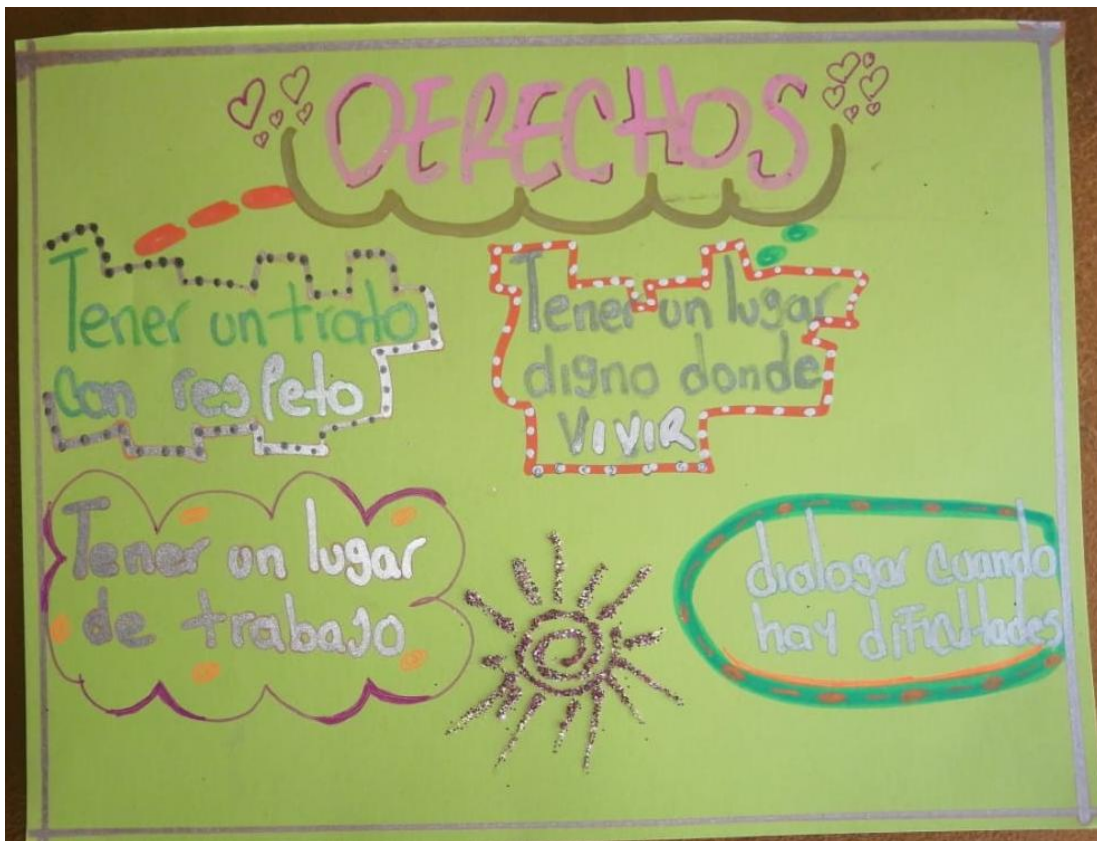 DERECHOS
Tener un trato
con respeto
Tener un lugar
digno donde
VIVIR
Tener un lugar
de trabajo
dialogar cuando
hay dificultades